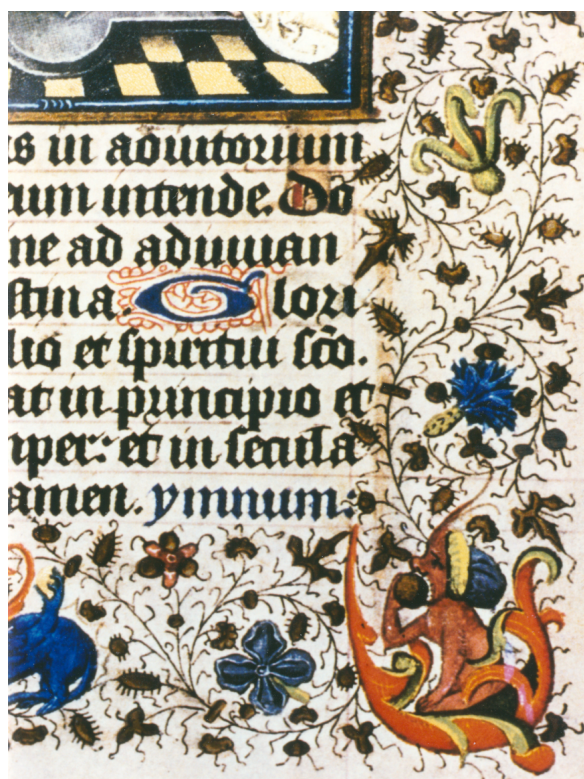 s in adiutorium
eum intende. Do
ne ad adiuuan
stina. Glori
lio et spiritui sc̄o.
at in principio et
mper: et in secula
amen. ymnum: